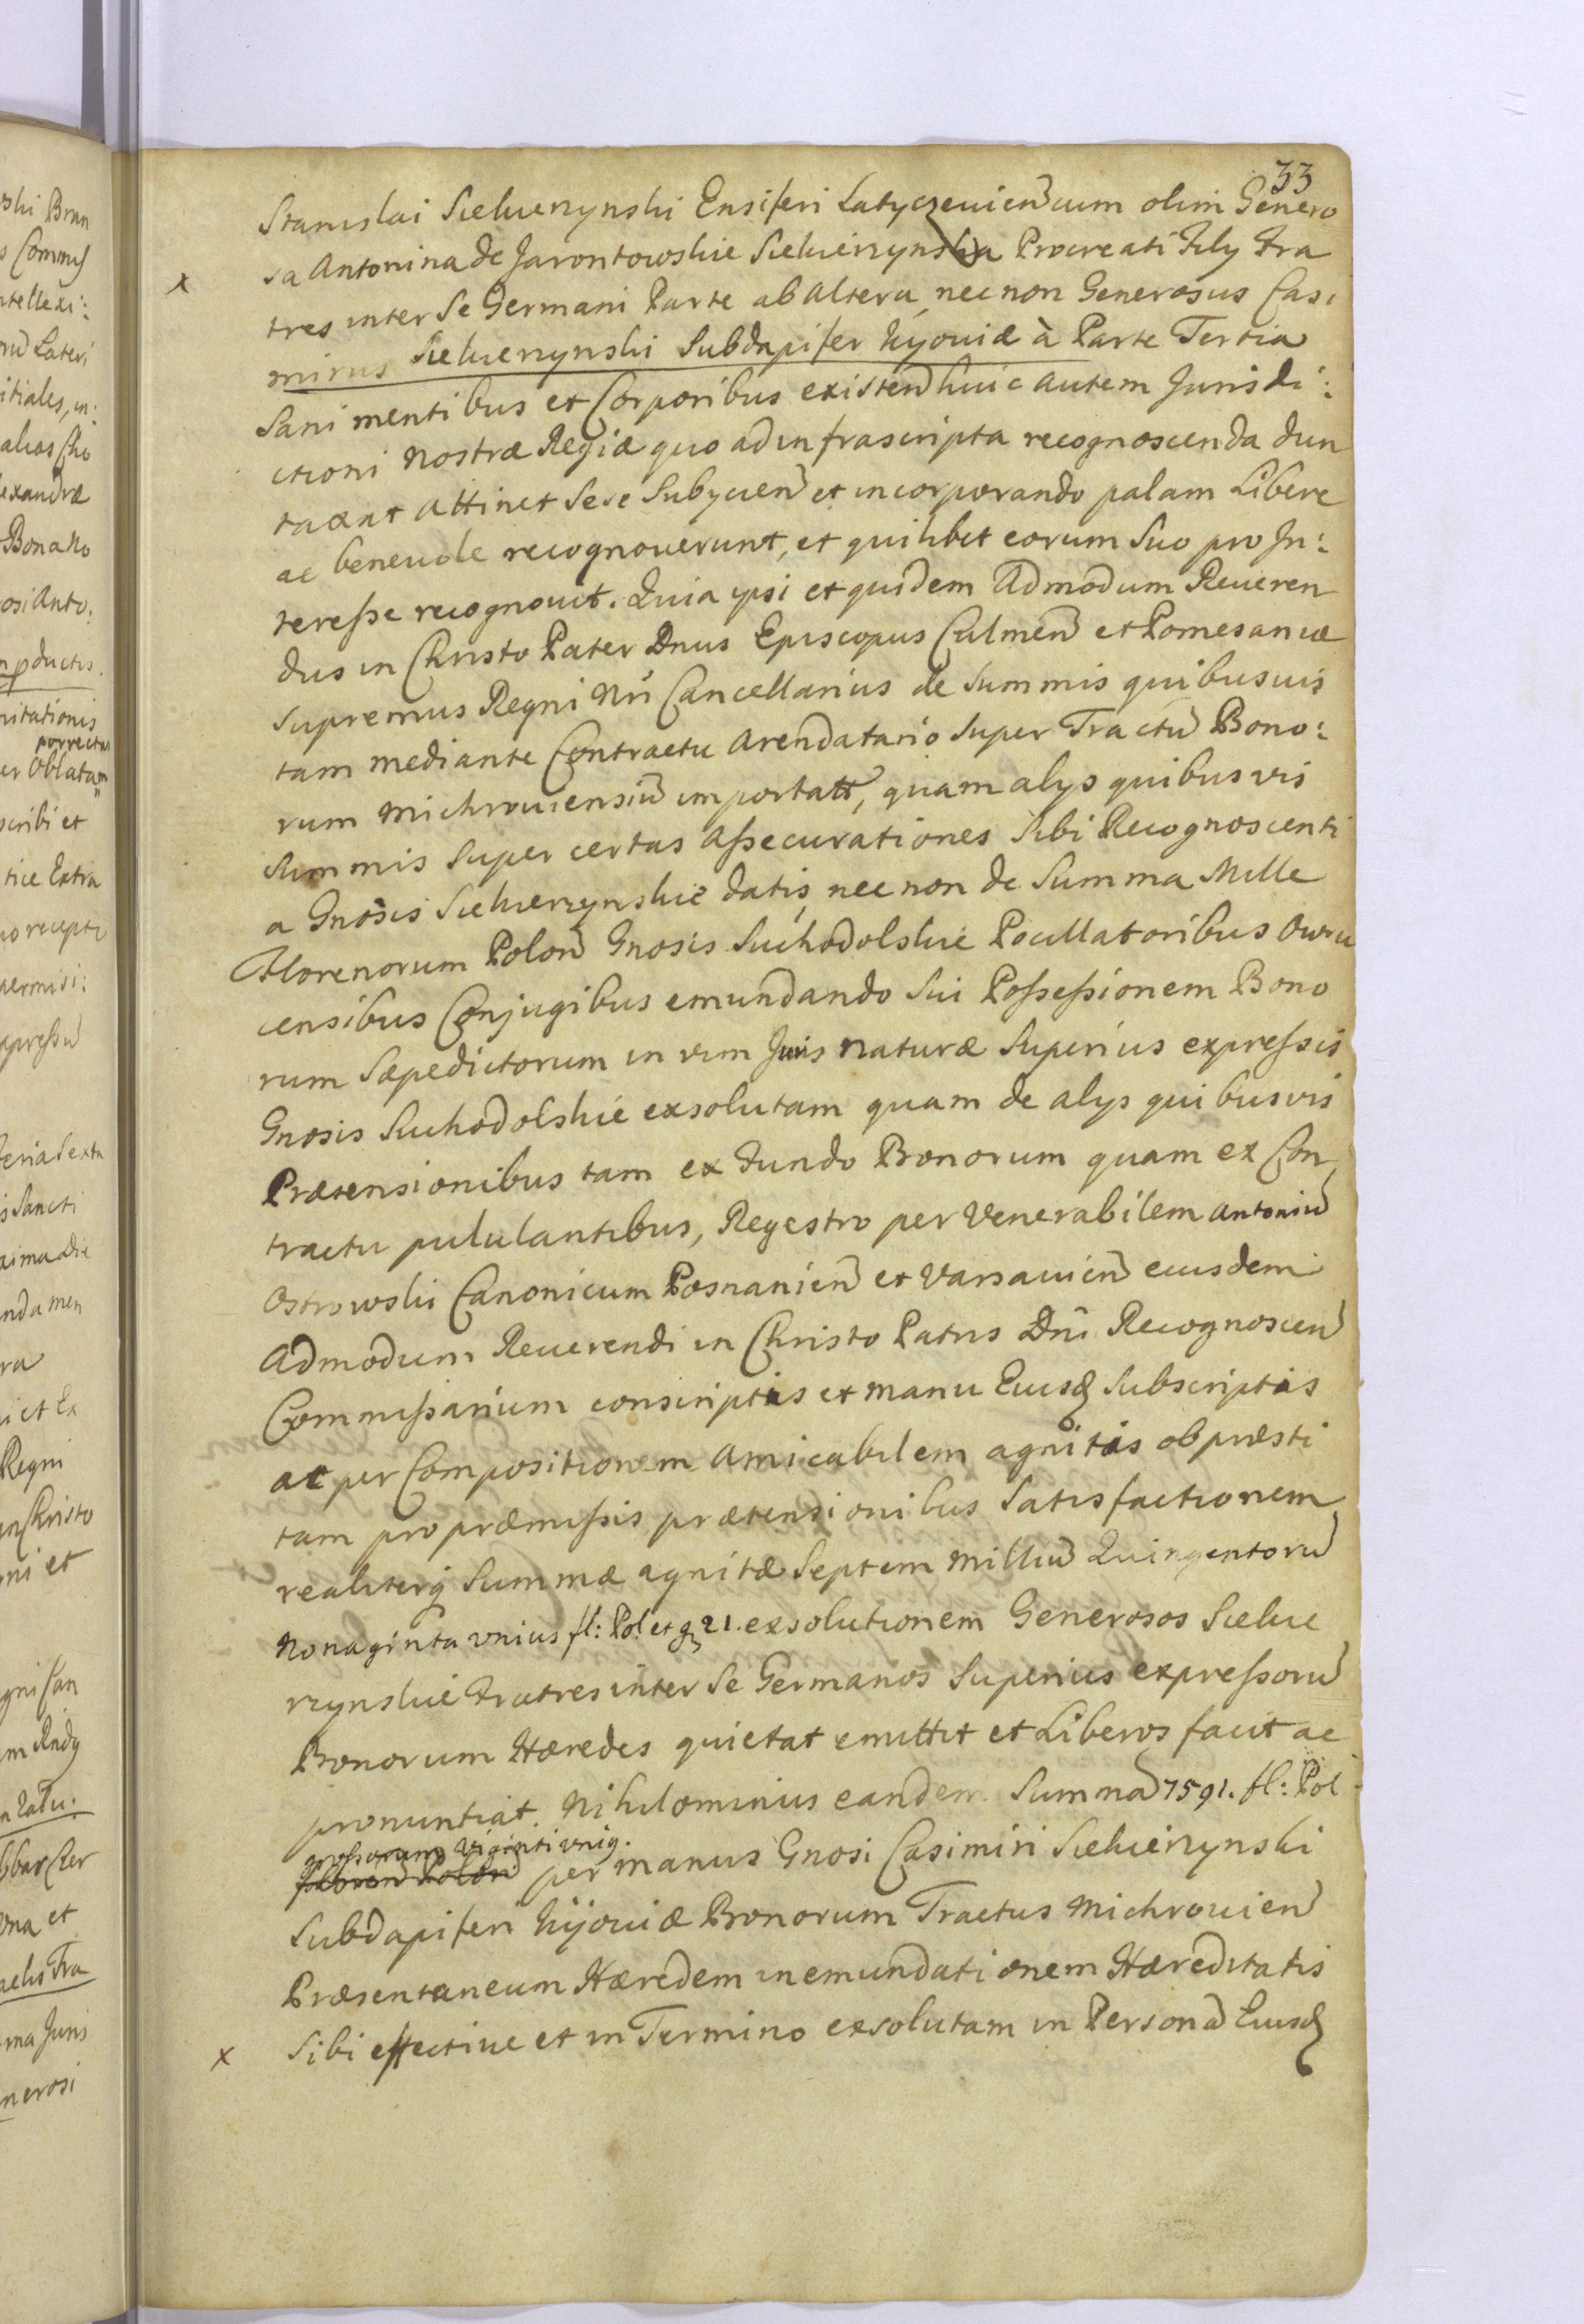 33
Stanislai Siekierzynski Ensiferi Latyczeuien cum olim Genero
sa Antonina de Jarontowskie Siekierzynska Procreati Fily Fra
x
tres inter Se Germani Parte ab Altera, nec non Generosus Casi
mirus Siekierzynski Subdapifer Kijouiæ à Parte Tertia
Sani mentibus et Corporibus existen huic autem Jurisdi:
ctioni Nostræ Regiæ quo ad infrascripta recognoscenda dun
taxat attinet Sese Subycien et incorporando palam Libere
ac beneuole recognouerunt, et quilibet eorum Suo pro In:
teresse recognouit. Quia ipsi et quidem Admodum Reueren
dus in Christo Pater Dnus Episcopus Culmen et Pomesaniæ
Supremus Regni Nri Cancellarius de Summis quibusuis
tam mediante Contractu Arendatario Super Tractu Bono:
rum Michrouiensiu importatt, quam alys quibusvis
Summis Super certas Assecurationes Sibi Recognoscenti
a Gnosis Siekierzynskie datis, nec non de Summa Mille
Florenorum Polon Gnosis Suchodolskie Pocillatoribus Owru
censibus Conjugibus emundando Sui Possessionem Bono
rum Sæpedictorum in vim Juris naturæ Superius expressis
Gnosis Suchodolskie exsolutam quam de alys quibusvis
Prætensionibus tam ex Fundo Bonorum quam ex Con
tractu pululantibus, Regestro per Venerabilem Antoniu
Ostrowski Canonicum Posnanien et Varsauien eiusdem
Admodum Reuerendi in Christo Patris Dni Recognoscen
Commissarium conscriptis et manu Eiusd Subscriptis
ac per Compositionem Amicabilem agnitis ob præsti
tam pro præmissis prætensionibus Satisfactionem
realiterq Summæ agnitæ Septem Milliu Quingentoru
Nonaginta vnius fl: Pol: et g 21. exsolutionem Generosos Siekie
rzynskie Fratres inter Se Germanos Superius expressoru
Bonorum Hæredes quietat emittit et Liberos facit ac
pronuntiat. Nihilominus eandem Summa 7591. fl: Pol
grossorum viginti vniq.
per manus Gnosi Casimiri Siekierzynski
Subdapiferi Kijouiæ Bonorum Tractus Michrouien
Præsentaneum Hæredem in emundationem Hæreditatis
x Sibi effectiue et in Termino exsolutam in Persona Eiusd